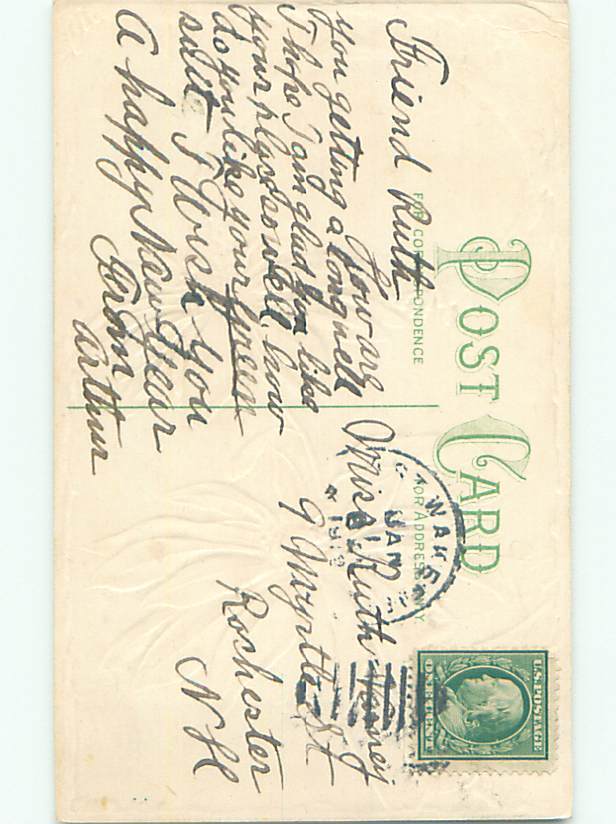 POST CARD
FOR CORRESPONDENCE
FOR ADDRESS ONLY
Friend Ruth
How are
you getting along well
I hope I am glad you like
your place so well how
do you like your
suit I Wish you
A happy New Year
From
Arthur
Miss Ruth
9 Myrtle St
Rochester
N H
WAKE
JAN
1912
U.S. POSTAGE
ONE CENT